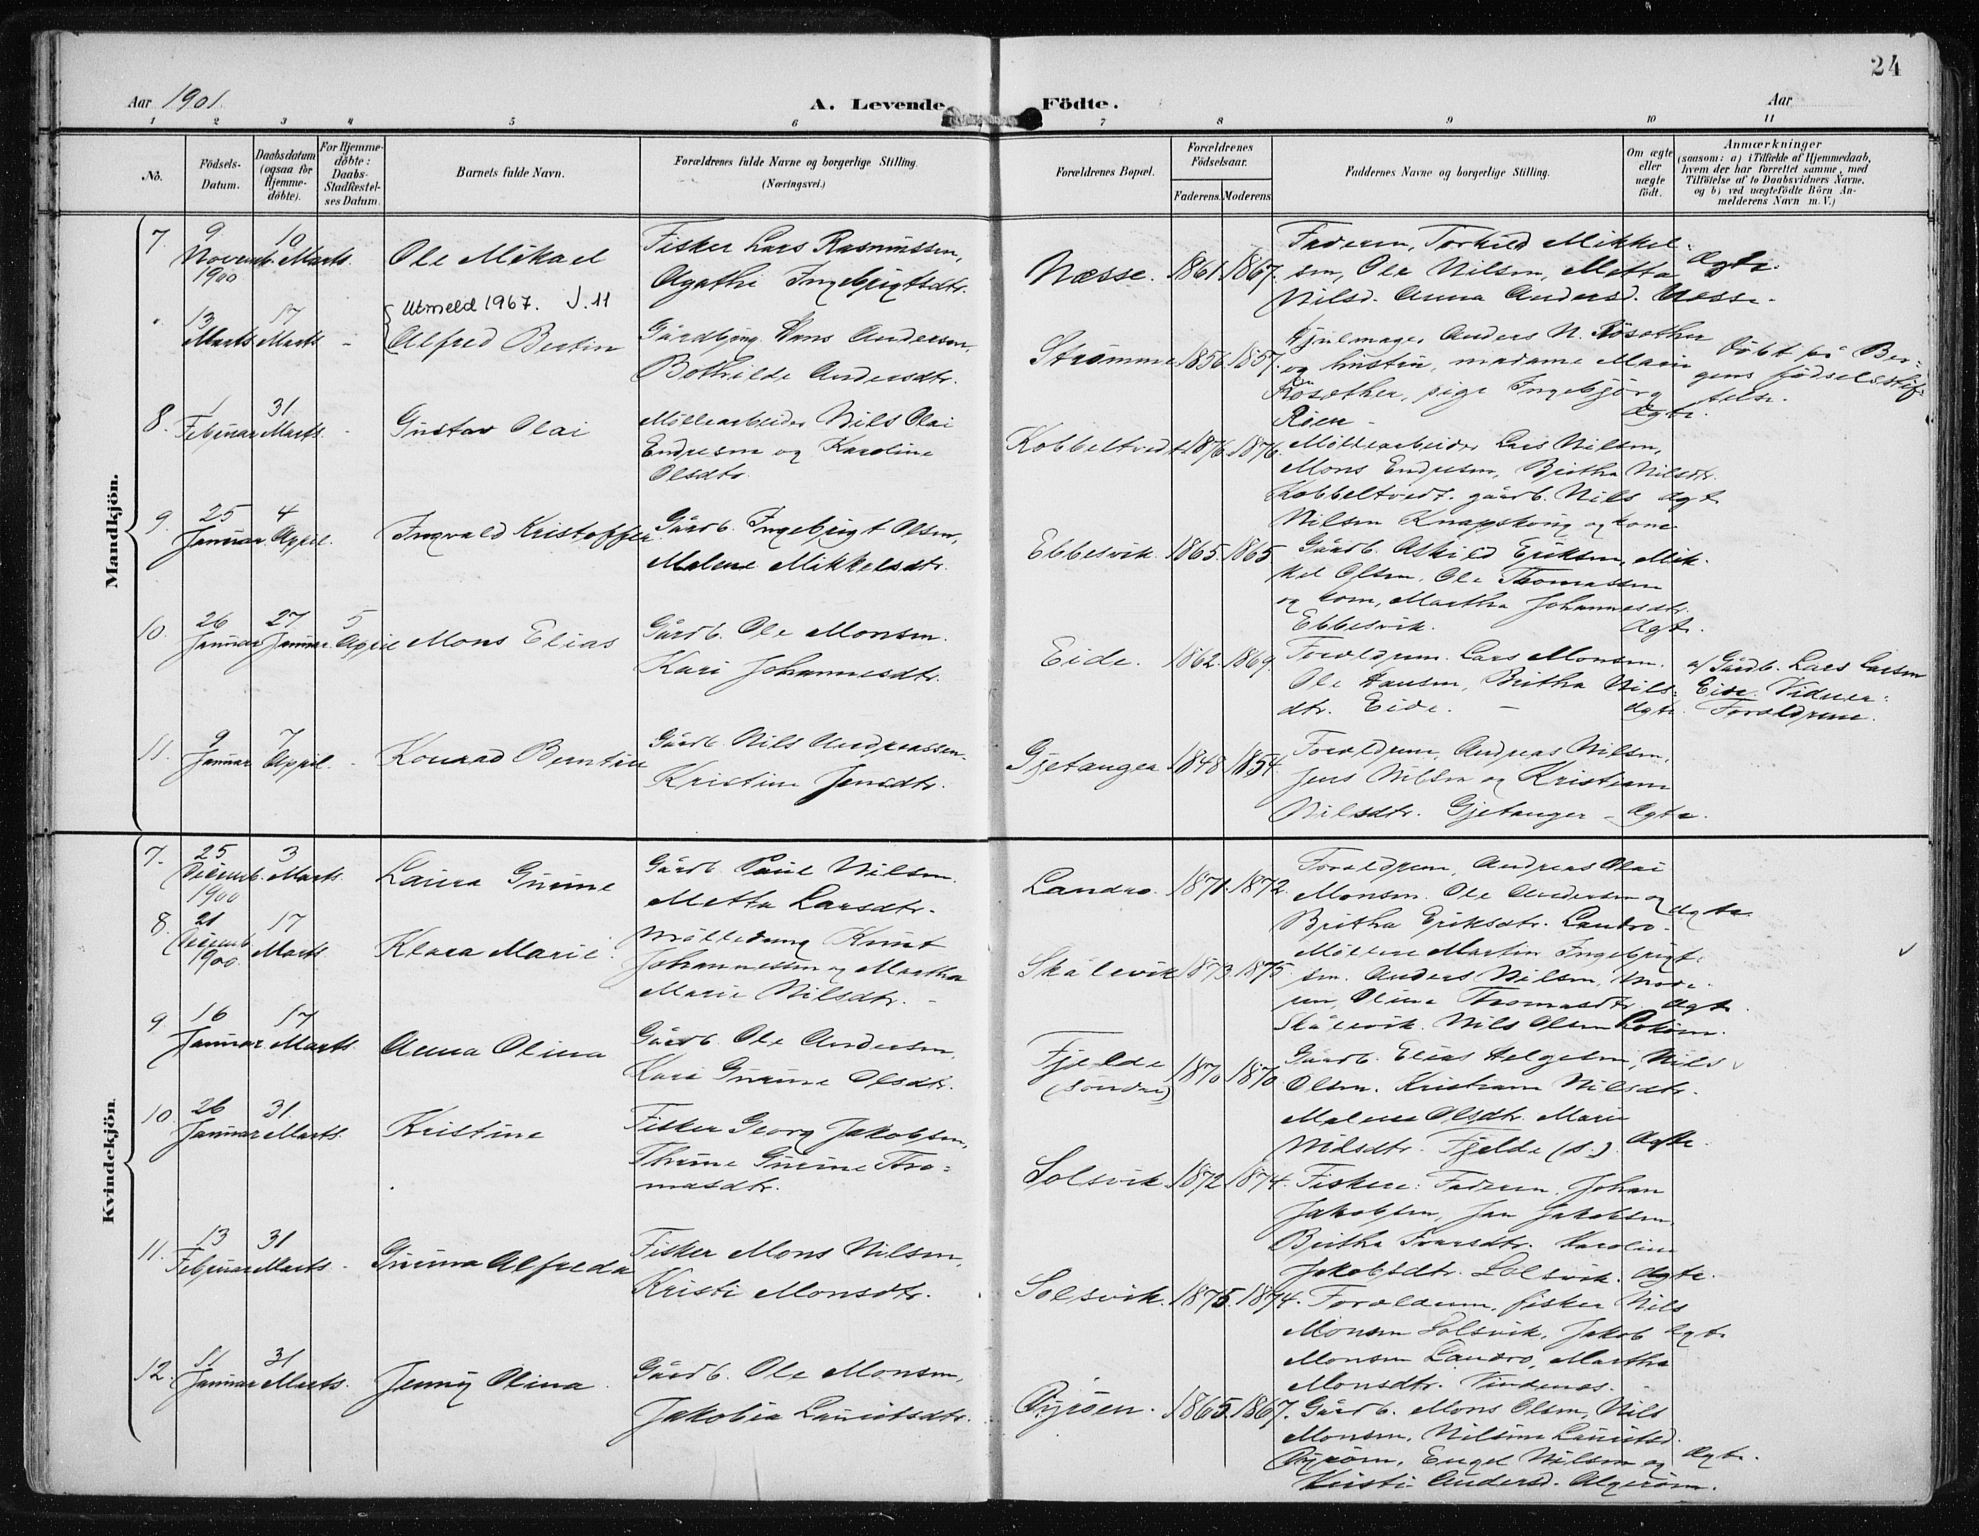 24
Aar 1901. A. Levende Födte. Aar
1 2 3 4 5 6 7 8 9 10 11
No.
Födsels-
Datum.
Daabsdatum
(ogsaa for
Hjemme-
döbte).
For Hjemme-
döbte:
Daabs-
Stadfæstel-
ses Datum.
Barnets fulde Navn.
Forældrenes fulde Navne og borgerlige Stilling.
(Næringsvei.)
Forældrenes Bopæl.
Forældrenes
Födselsaar.
Faderens. Moderens.
Faddernes Navne og borgerlige Stilling.
Om ægte
eller
uægte
födt.
Anmærkninger
(saasom: a) i Tilfælde af Hjemmedaab,
hvem der har forrettet samme, med
Tilföielse af to Daabsvidners Navne,
og b) ved uægtefödte Börn An-
melderens Navn m. V.)
Mandkjön.
7. 9 Novemb. 1900 10 Marts. Ole Mikael
Fisker Lars Rasmussen,
Agathe Ingebrigtsdtr.
Næsse. 1861. 1867.
Faderen, Torkild Mikkel-
sen, Ole Nilsen, Metta
Nilsd. Anna Andersd. Næsse.
Ægte.
Utmeld 1967. J. 11
13 Marts 17 Marts - Alfred Bertin
Gårdbrug. Hans Andersen,
Bothilde Andersdtr.
Strømme 1856. 1857.
Hjulmager Anders N. Røsether
og hustru, madame Marie
Røsether, pige Ingebjørg
Røen -
ægte.
Døbt på Ber-
gens fødselsstif-
telse.
8. 1 Februar 31 Marts. - Gustav Olai
Møllearbeider Nils Olai
Endresen og Karoline
Olsdtr.
Kobbeltvedt 1876. 1876.
Møllearbeider Lars Nilsen,
Mons Endresen, Britha Nilsdtr.
Kobbeltvedt. gårdb. Nils
Nilsen Knapskoug og kone
ægte
9. 25 Januar. 4 April. Ingvald Kristoffer
Gårdb. Ingebrigt Olsen,
Malene Mikkelsdtr.
Ebbesvik. 1865. 1865.
Gårdb. Askild Eriksen, Mik-
kel Olsen, Ole Thomassen
og kone, Martha Johannesdtr.
Ebbesvik.
ægte.
10. 26 Januar 27 Januar. 5 April Mons Elias
Gårdb. Ole Monsen.
Kari Johannesdtr.
Eide. 1862. 1869.
Forældrene. Lars Monsen.
Ole Hansen, Britha Nils-
dtr. Eide. -
ægte.
a/ Gårdb. Lars Larsen
Eide. Vidner:
Forældrene.
11. 9 Januar 7 April. - Konrad Berntin
Gårdb. Nils Andreassen
Kristine Jensdtr.
Gjetanger 1848. 1854.
Forældrene, Andreas Nilsen,
Jens Nilsen og Kristiane
Nilsdtr. Gjetanger -
ægte.
Kvindekjön.
7. 25 Decemb. 1900 3 Marts. Laura Gurine
Gårdb. Paul Nilsen.
Metta Larsdtr.
Landro. 1871. 1872.
Forældrene, Andreas Olai
Monsen. Ole Andersen og
Britha Eriksdtr. Landro.
ægte
8. 21 Decemb. 1900. 17 Marts. Klara Marie.
Mølledreng Knut
Johannessen og Martha
Marie Nilsdtr. -
Skålevik 1873. 1875.
Møller Martin Ingebrigt-
sen. Anders Nilsen, Mode-
ren, Olina Thomasdtr.
Skålevik. Nils Olsen
ægte.
9. 16 Januar 17 Marts. Anna Olina
Gårdb. Ole Andersen,
Kari Gurine Olsdtr.
Fjelde
(søndre) 1870. 1870
Gårdb. Elias Helgesen, Nils
Olsen. Kristiane Nilsdtr.
Malene Olsdtr. Marie
Nilsdtr. Fjelde (s.).
ægte.
10. 26 Januar 31. Marts. Kristine
Fisker Georg Jakobsen,
Thrine Gurine Tho-
masdtr.
Solsvik 1872. 1874.
Fiskere: Faderen. Johan
Jakobsen, Jan Jakobsen,
Britha Ivarsdtr. Karoline
Jakobsdtr. Solsvik.
ægte.
11. 13 Februar 31 Marts - Gurina Alfreda
Fisker Mons Nilsen,
Kristi Monsdtr.
Solsvik. 1875. 1874.
Forældrene, fisker Nils
Monsen Solsvik, Jakob
Monsen Landro, Martha
Monsdtr. Vindenes.
ægte.
12. 11 Januar 31 Marts. Jenny Olina.
Gårdb. Ole Monsen,
Jakobia Lauritsdtr.
1865. 1867.
Gårdb. Mons Olsen, Nils
Monsen, Nilsine Lauritsd.
Engel Nilsen og
Kristi Andersd. Algerøen.
ægte.